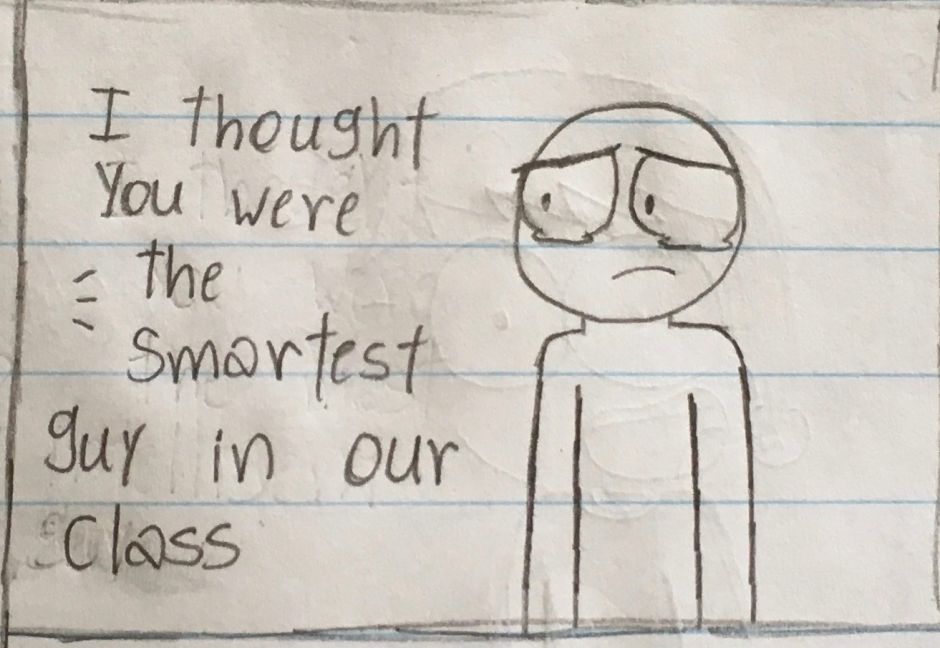 I thought
You were
the
smartest
guy in our
Class